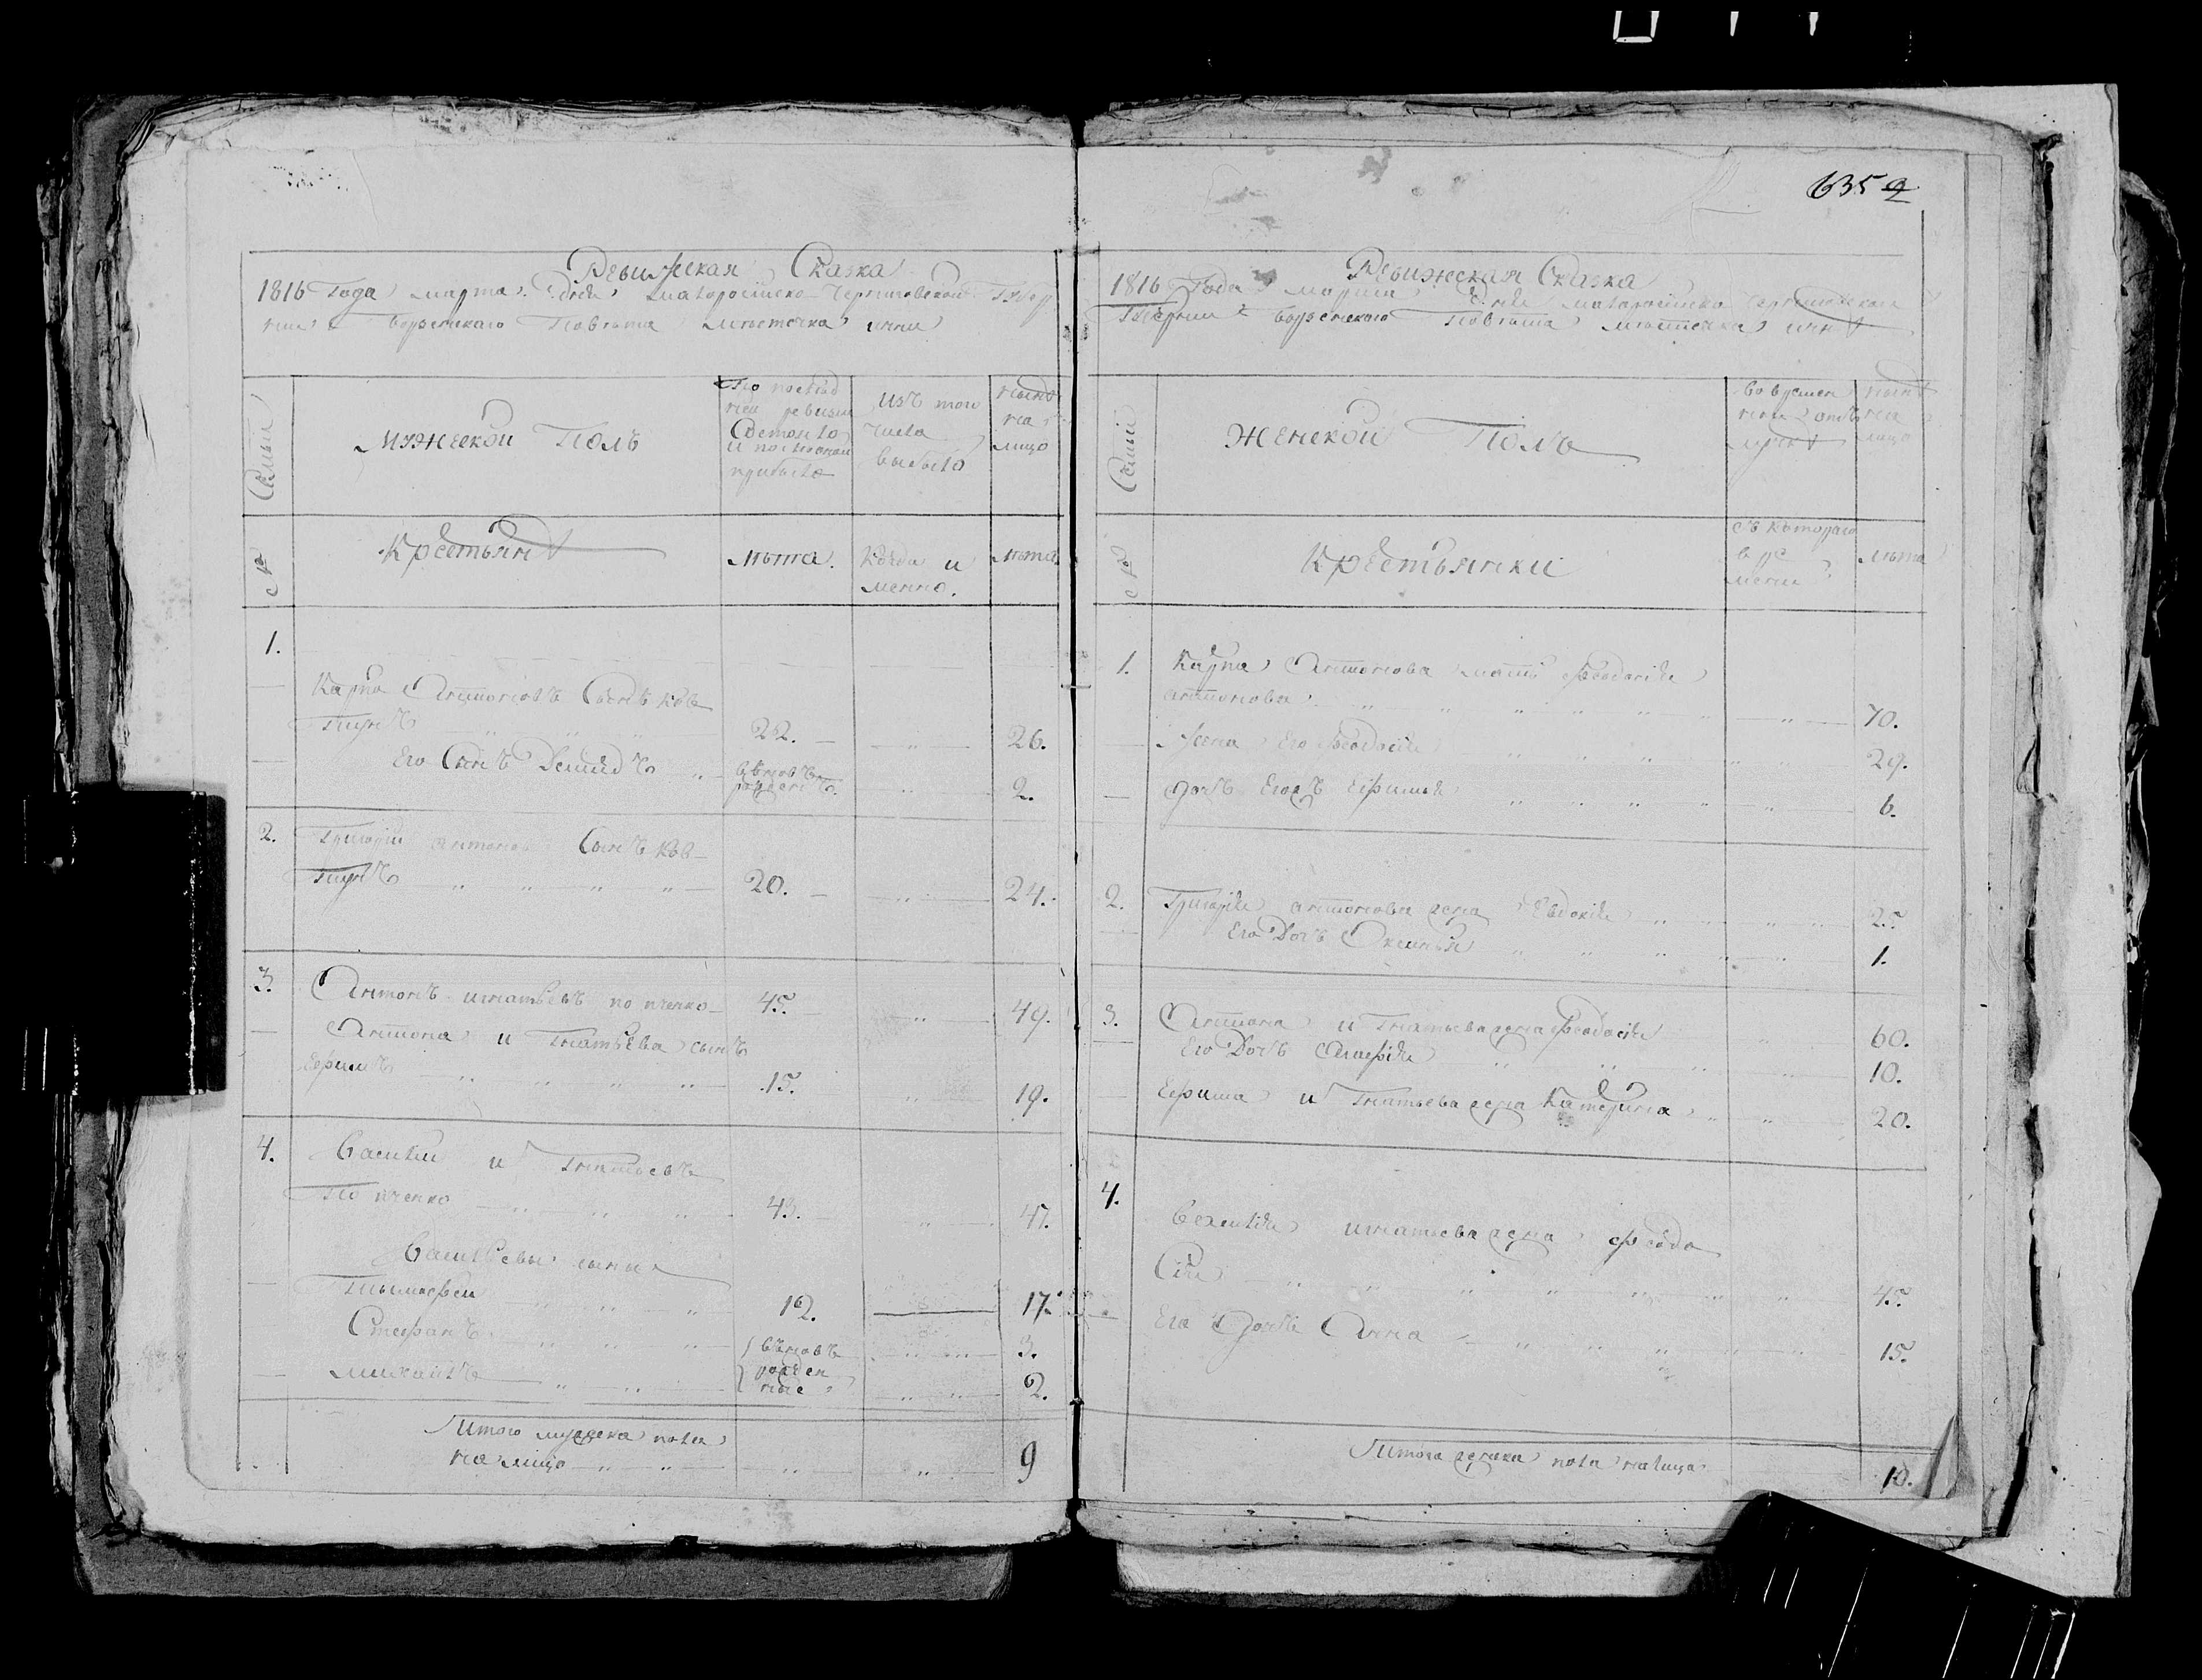 635 2
Ревижская Сказка
1816 Года марта дня малоросійско Черниговской Губер
нии борзенскаго Повѣта мѣстечка ични
Семьи
мужеской Полъ
По послѣд
ней ревизіи
Состояло
и послѣ оной
прибыло
Изъ того
числа
выбыло
нынѣ
на
лицо
№
Крестьянѣ
лѣта.
Когда и
менно.
лѣта
1.
Карпъ Антоновъ Сынъ Ков
тунъ 22. 26.
Его Сынъ Демидъ вновь
рожденъ. 2.
2. Григорій антоновъ Сынъ Ков
тунъ 20. 24.
3. Антонъ игнатьевъ по пченко 45. 49.
Антона и Гнатьева сынъ
Ефимъ 15. 19.
4. Василій и Гнатьевъ
По пченко 43. 47.
Васильевы сыны
Тымофей 12. 17.
Стефанъ вновь 3.
михаилъ рожден
ные 2.
Итого мужеска пола
на лицо 9
Ревижская Сказка
1816 Года марта дня малоросійско Черниговской
Губернии борзенскаго Повѣта мѣстечка ичнѣ
Семьи
Женской Полъ
во времен
ной отъ
лучкѣ
нынѣ
на
лицо
№
Крестьянки
съ котораго
вре
мени
лѣта
1. Карпа Антонова мать Феодосія
антонова 70.
жена Его Феодосія 29.
дочь Его Ефимія 6.
2. Григорія антонова жена Евдокія 25
Его Дочь Оксинья 1.
3. Антона и Гнатьева жена Феодосія 60.
Его Дочь 10.
Ефима и Гнатьева жена Катерина 20.
4.
Василія игнатьева жена феодо
сія 45.
Его Дочь Анна 15.
Итого женска пола налицо 10.